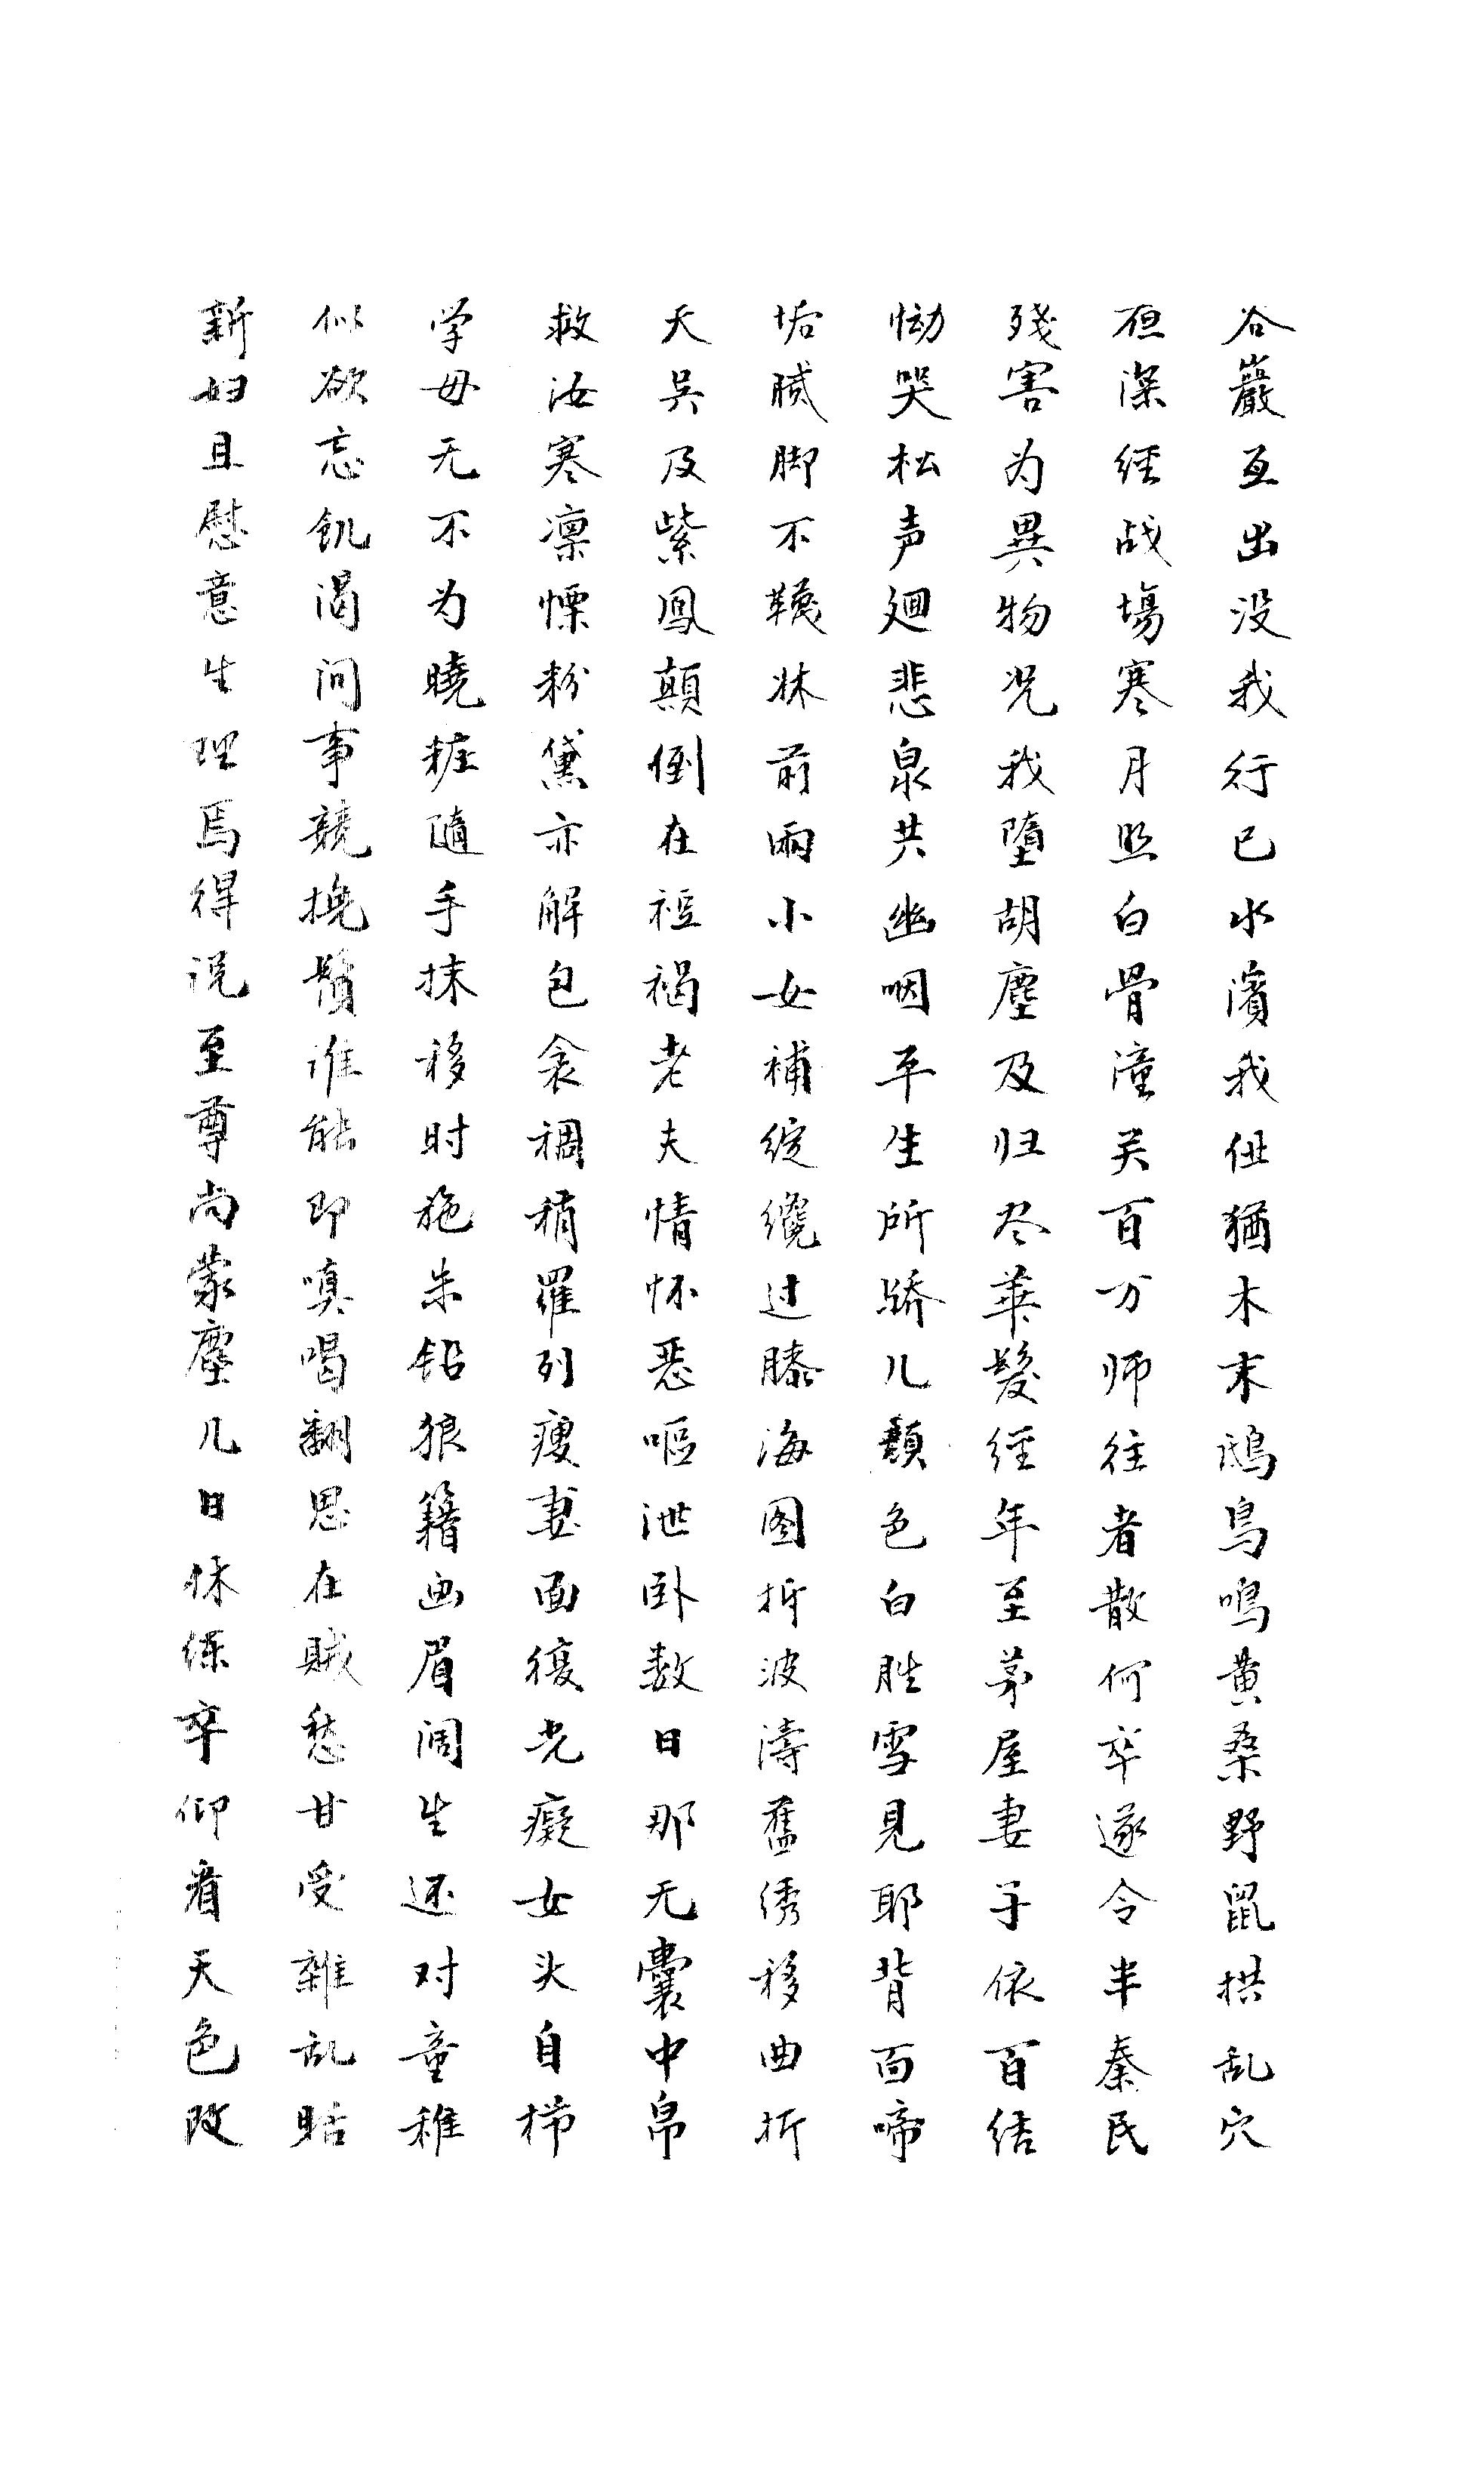 谷巖互出没我行已水濱我仆猶木末鴟鳥鳴黄桑野鼠拱乱穴
夜深经战場寒月照白骨潼关百万师往者散何卒遂令半秦民
殘害为異物况我墮胡塵及归尽華髮经年至茅屋妻子依百结
恸哭松声廻悲泉共幽咽平生所骄儿顏色白胜雪見耶背面啼
垢腻脚不韈牀前兩小女補綻纔过膝海图坼波濤舊绣移曲折
天吳及紫鳳顛倒在裋褐老夫情怀恶嘔泄卧数日那无囊中帛
救汝寒凛慄粉黛亦解包衾裯稍羅列瘦妻面復光癡女头自栉
学母无不为曉粧隨手抹移时施朱铅狼籍画眉阔生还对童稚
似欲忘飢渴问事競挽鬚谁能即嗔喝翻思在贼愁甘受雜乱聒
新妇且慰意生理焉得说至尊尚蒙塵几日休练卒仰看天色改